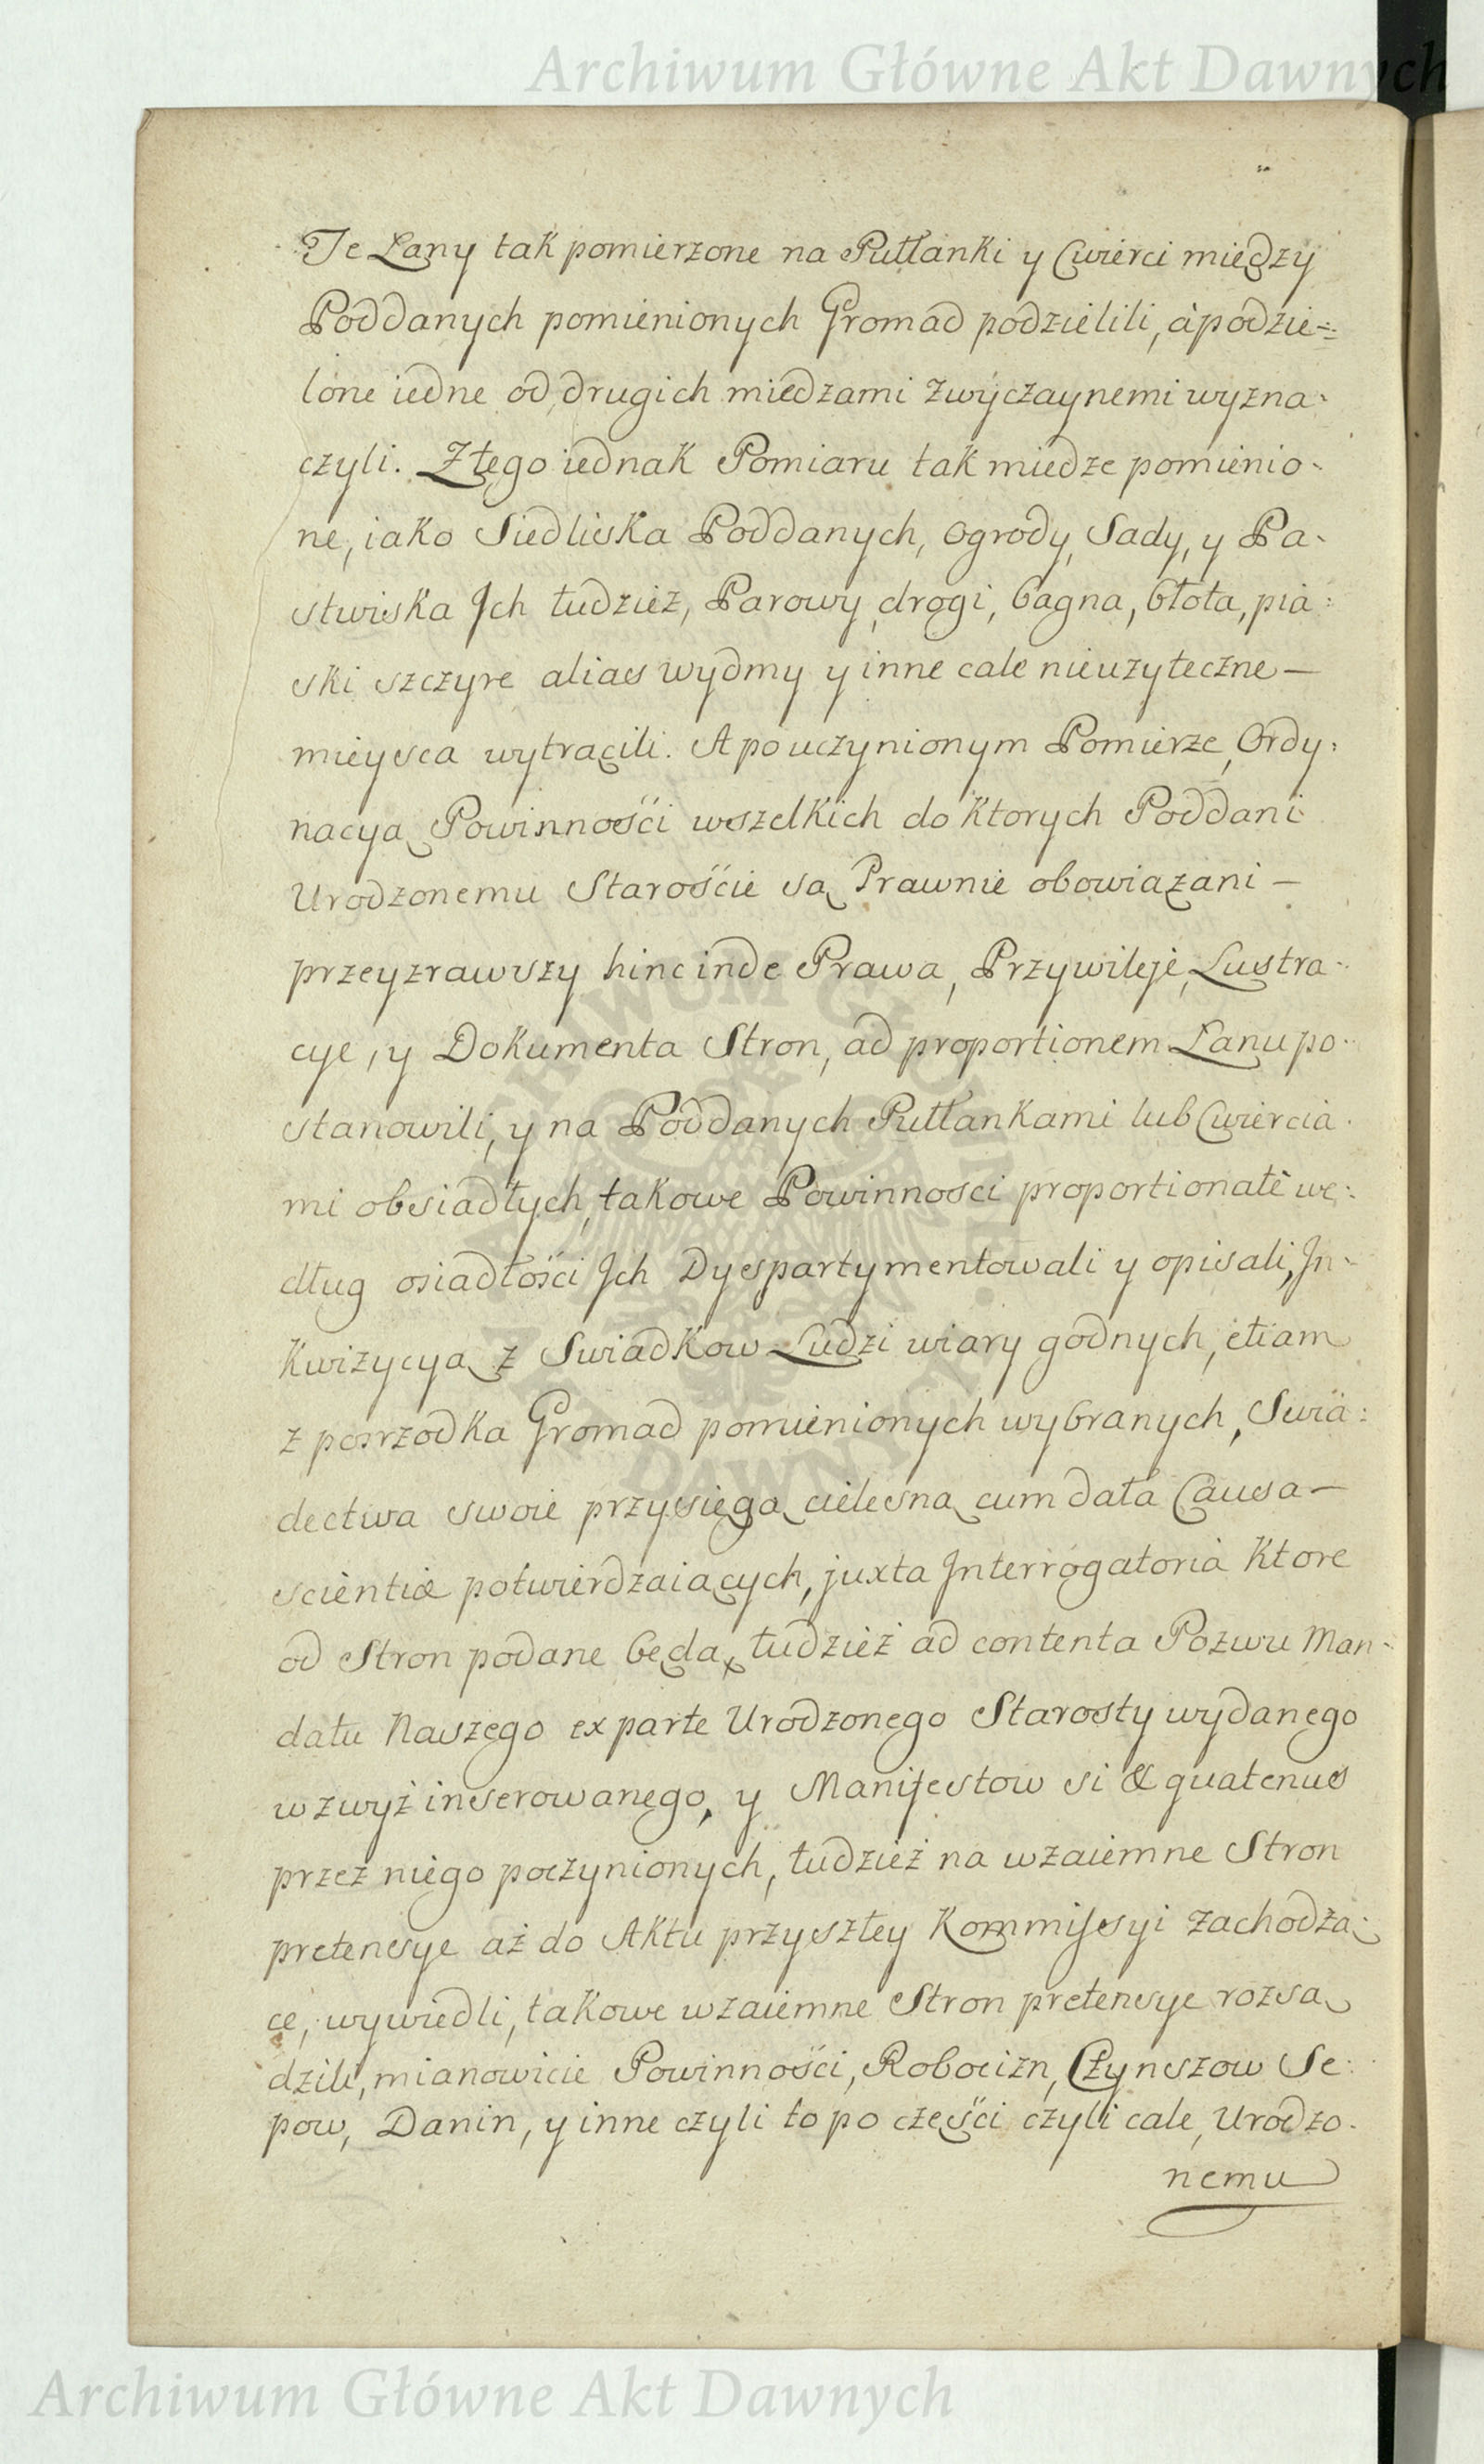 Archiwum Główne Akt Dawnych
Te Łany tak pomierzone na Pułłanki y Cwierci między
Poddanych pomienionych Gromad podzielili, à podzie=
lone iedne od drugich miedzami zwyczaynemi wyzna-
czyli. Z tego iednak Pomiaru tak miedze pomienio-
ne, iako Siedliska Poddanych, Ogrody, Sady, y Pa-
stwiska Jch tudzież, Parowy, drogi, bagna, błota, pia:
ski szczyre alias wydmy y inne cale nieuzyteczne —
mieysca wytrącili. A po uczynionym Pomierze, Ordy:
nacyą Powinności wszelkich do ktorych Poddani
Urodzonemu Starościе są Prawnie obowiązani —
przeyzrawszy hinc inde Prawa, Przywileje, Lustra-
cye, y Dokumenta Stron, ad proportionem Łanu po-
stanowili, y na Poddanych Pułłankami lub Cwiercia-
mi obsiadłych, takowe Powinnosci proportionatè we:
dług osiadłości Jch Dyspartymentowali y opisali, Jn-
kwizycyą z Swiadkow Ludzi wiary godnych, etiam
z posrzodka Gromad pomienionych wybranych, Swia:
dectwa swoie przysięgą cielesną cum data Causa —
scientiæ potwierdzaiących, juxta Jnterrogatoria ktore
od Stron podane będą, tudzież ad contenta Pozwu Man-
datu Naszego ex parte Urodzonego Starosty wydanego
wzwyż inserowanego, y Manifestow si & quatenus
przez niego poczynionych, tudzież na wzaiemne Stron
pretensye aż do Aktu przyszłey Kommissyi zachodzą-
ce, wywiedli, takowe wzaiemne Stron pretensye rozsą
dzili, mianowicie Powinności, Robocizn, Czynszow Se:
pow, Danin, y inne czyli to po części czyli cale, Urodzo-
nemu
ARCHIWUM GŁÓWNE
AKT DAWNYCH
Archiwum Główne Akt Dawnych